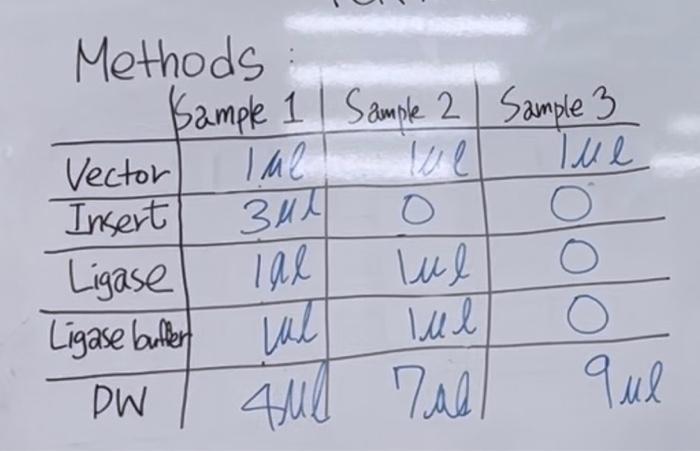 Methods :
Sample 1 Sample 2 Sample 3
Vector 1μl 1μl 1μl
Insert 3μl 0 0
Ligase 1μl 1μl 0
Ligase buffer 1μl 1μl 0
DW 4μl 7μl 9μl